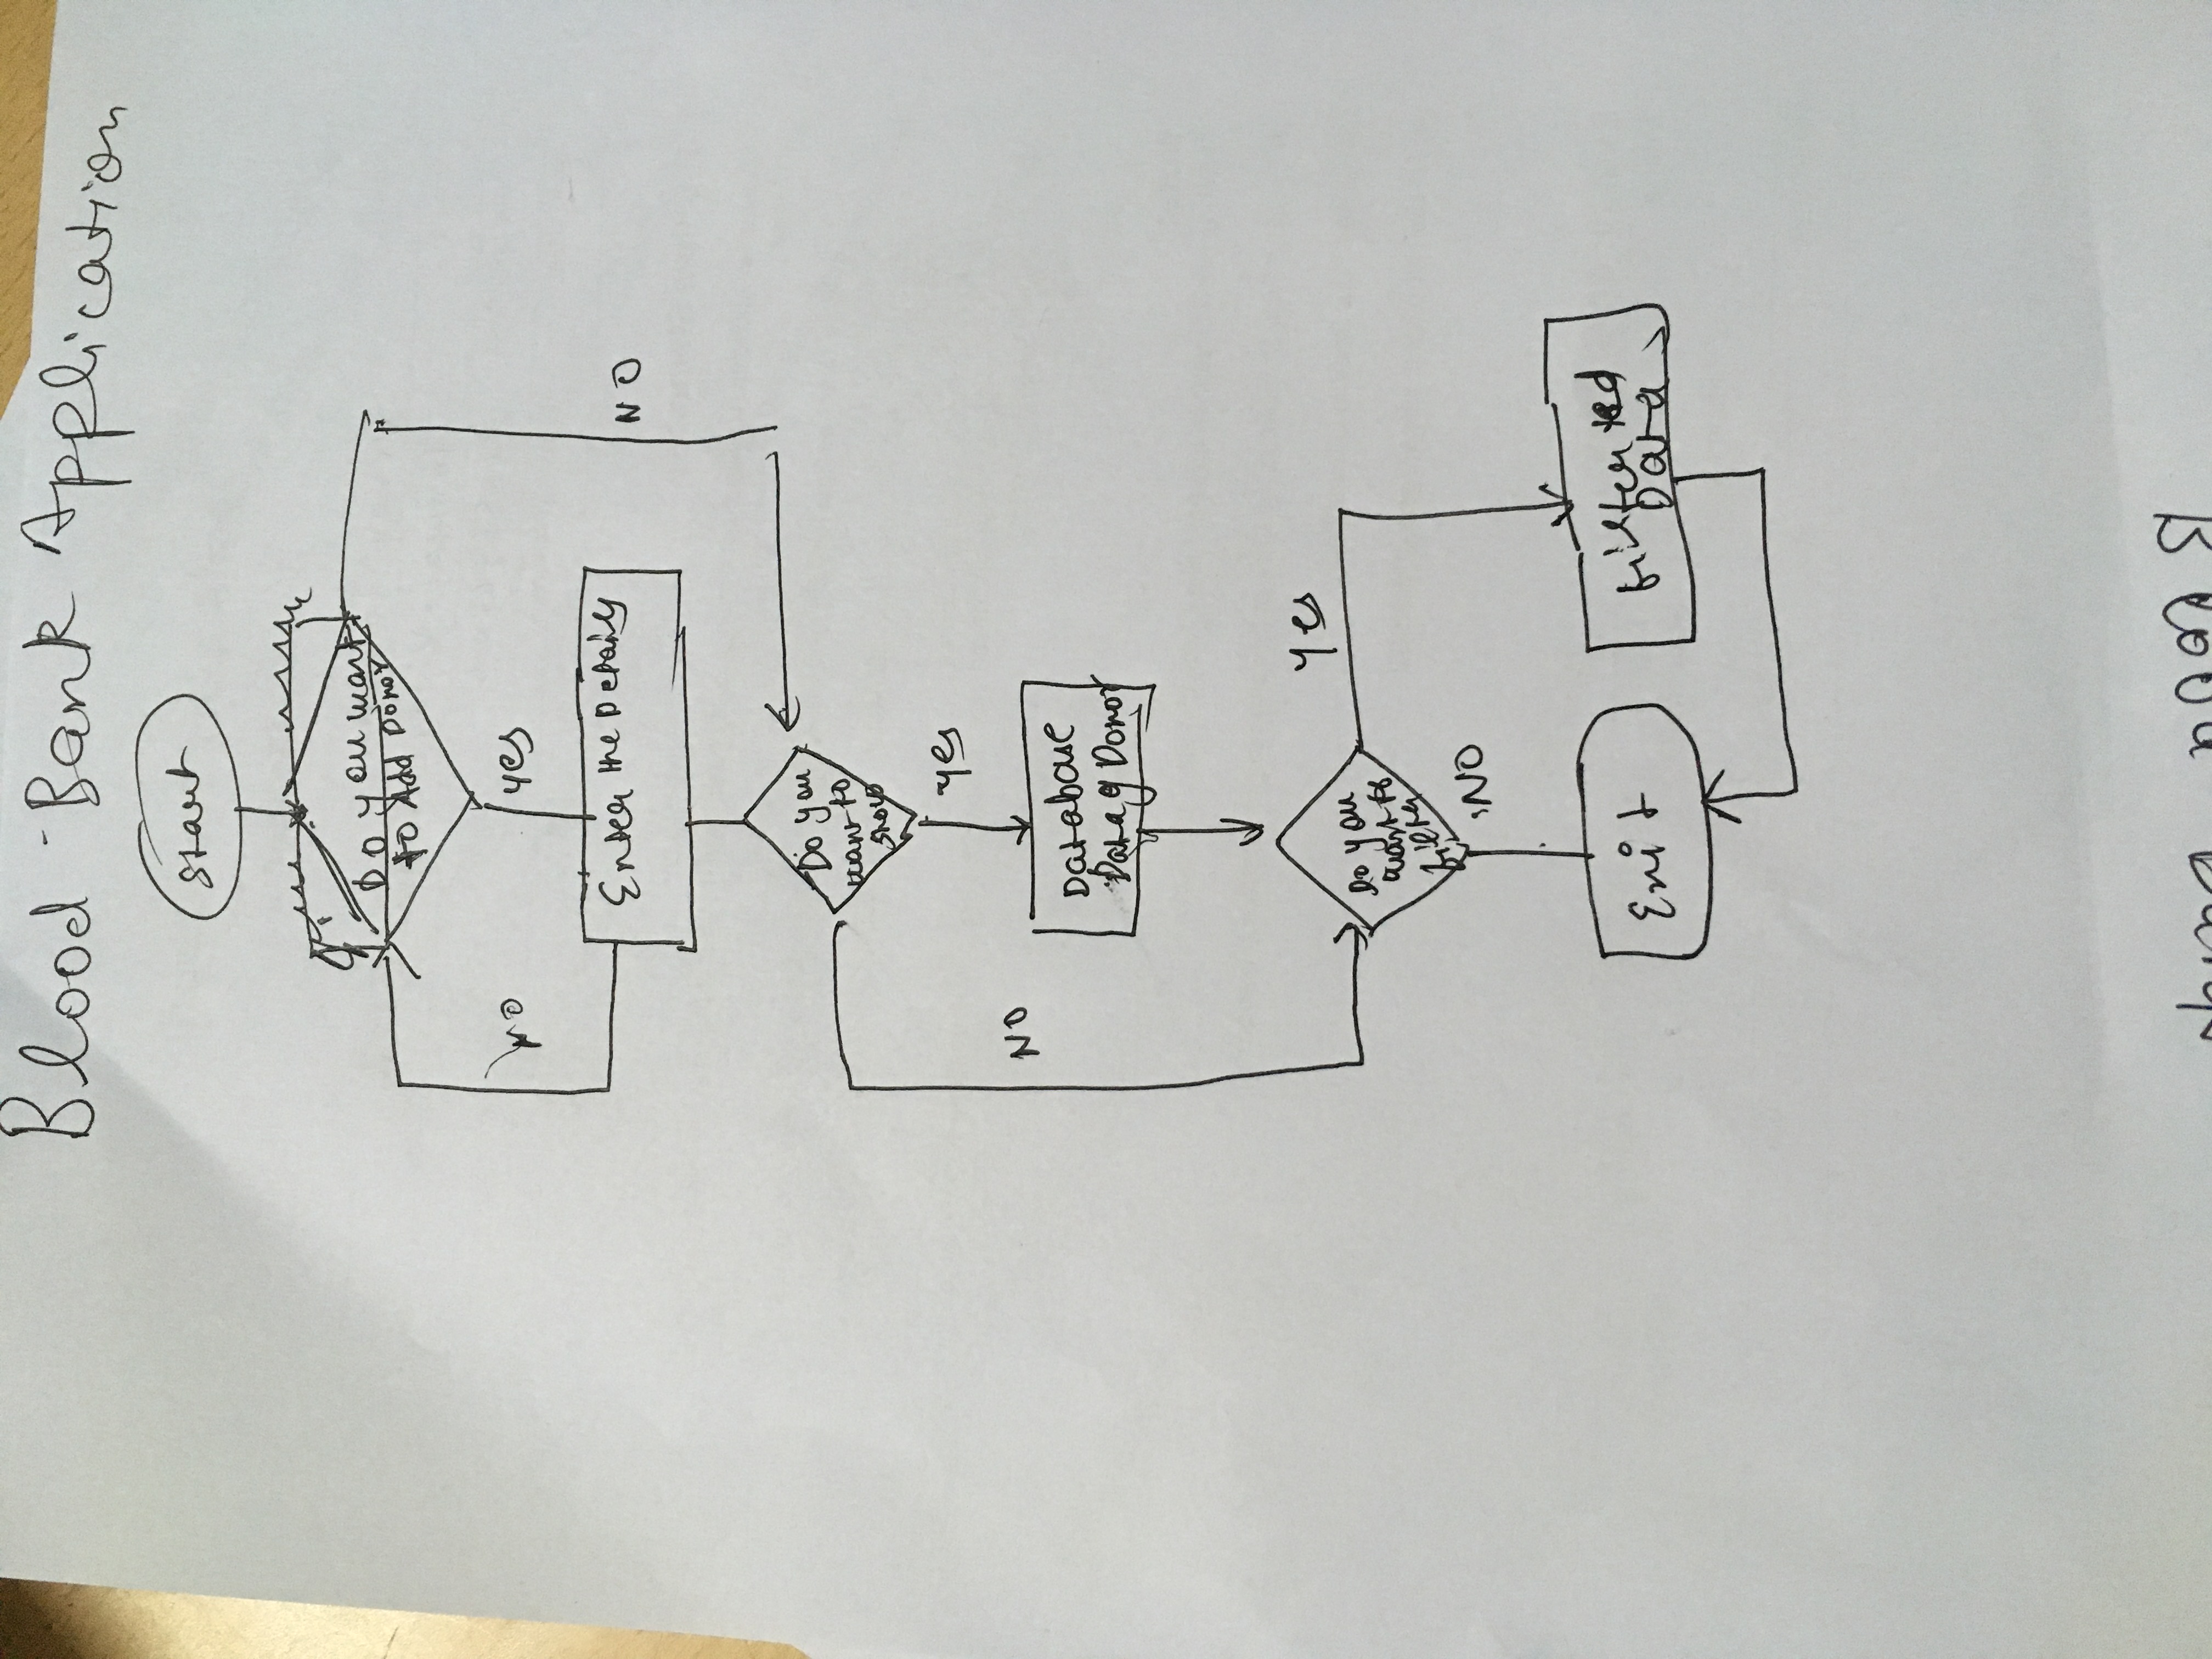 Blood Bank Application
Start
Do you want
to Add Donor
NO
yes
Enter the Details
NO
Do you
want to
show
yes
NO
Database
Data of Donor
yes
Do you
want to
filter
NO
Exit
filterted
Data
Blood Bank